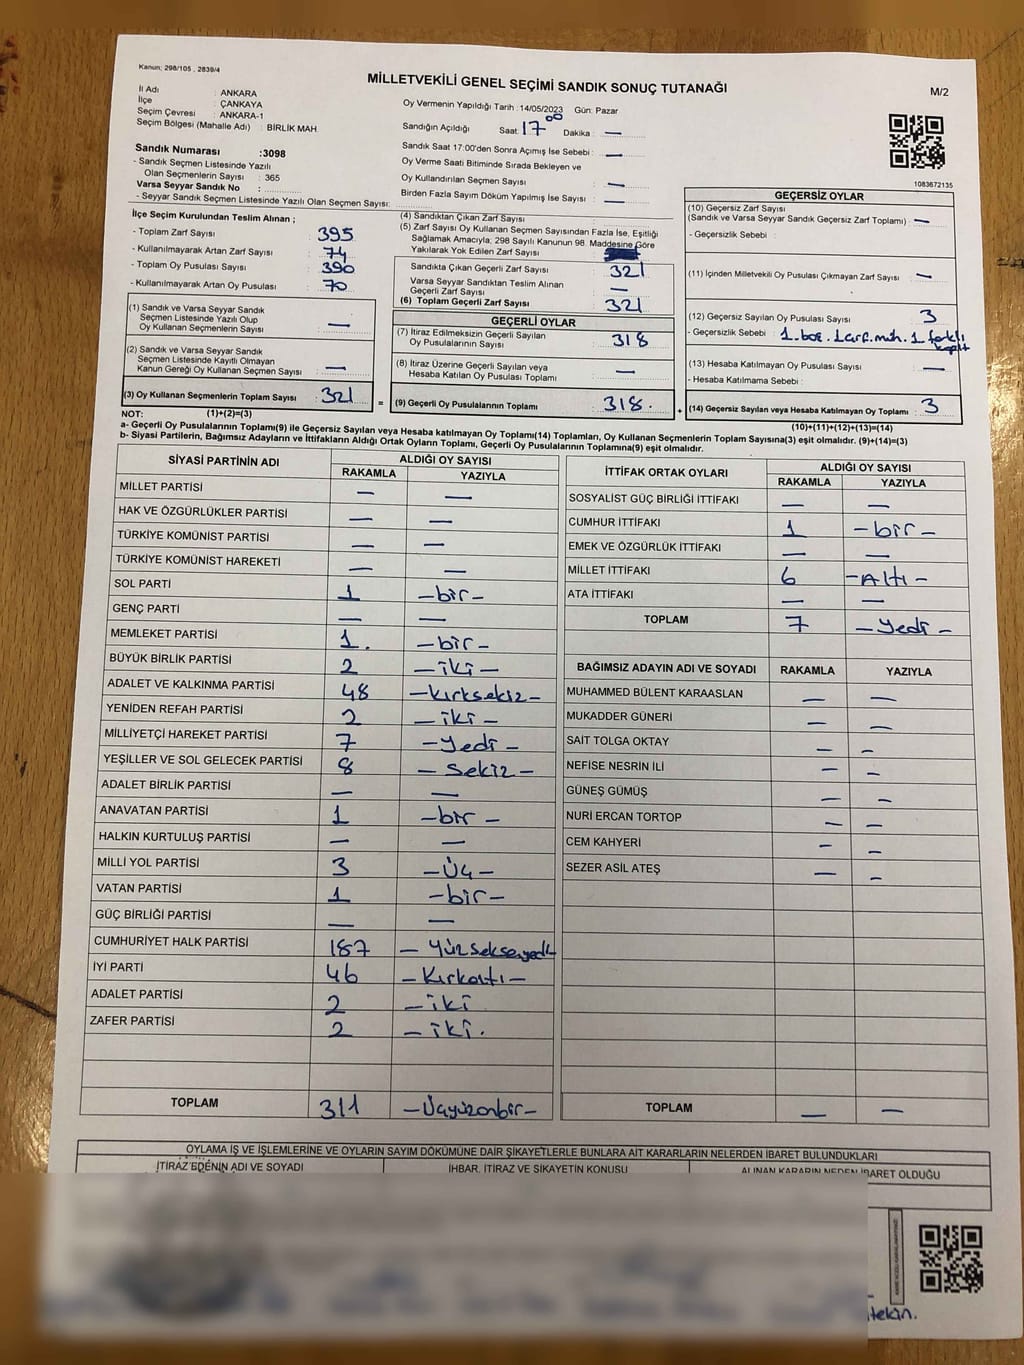 Kanun; 298/105 , 2839/4
MİLLETVEKİLİ GENEL SEÇİMİ SANDIK SONUÇ TUTANAĞI
M/2
İl Adı : ANKARA
İlçe : ÇANKAYA
Seçim Çevresi : ANKARA-1
Seçim Bölgesi (Mahalle Adı) : BİRLİK MAH.
Oy Vermenin Yapıldığı Tarih : 14/05/2023 Gün: Pazar
Sandığın Açıldığı Saat: 17 00 Dakika : —
Sandık Saat 17:00'den Sonra Açımış İse Sebebi : —
Oy Verme Saati Bitiminde Sırada Bekleyen ve
Oy Kullandırılan Seçmen Sayısı : —
Birden Fazla Sayım Döküm Yapılmış İse Sayısı : —
1083672135
Sandık Numarası :3098
- Sandık Seçmen Listesinde Yazılı
Olan Seçmenlerin Sayısı : 365
Varsa Seyyar Sandık No :
- Seyyar Sandık Seçmen Listesinde Yazılı Olan Seçmen Sayısı:
İlçe Seçim Kurulundan Teslim Alınan ;
- Toplam Zarf Sayısı : 395
- Kullanılmayarak Artan Zarf Sayısı : 74
- Toplam Oy Pusulası Sayısı : 390
- Kullanılmayarak Artan Oy Pusulası : 70
(1) Sandık ve Varsa Seyyar Sandık
Seçmen Listesinde Yazılı Olup
Oy Kullanan Seçmenlerin Sayısı : —
(2) Sandık ve Varsa Seyyar Sandık
Seçmen Listesinde Kayıtlı Olmayan
Kanun Gereği Oy Kullanan Seçmen Sayısı : —
(3) Oy Kullanan Seçmenlerin Toplam Sayısı : 321
(1)+(2)=(3)
(4) Sandıktan Çıkan Zarf Sayısı :
(5) Zarf Sayısı Oy Kullanan Seçmen Sayısından Fazla İse, Eşitliği
Sağlamak Amacıyla; 298 Sayılı Kanunun 98. Maddesine Göre
Yakılarak Yok Edilen Zarf Sayısı :
Sandıkta Çıkan Geçerli Zarf Sayısı : 321
Varsa Seyyar Sandıktan Teslim Alınan
Geçerli Zarf Sayısı : —
(6) Toplam Geçerli Zarf Sayısı : 321
GEÇERLİ OYLAR
(7) İtiraz Edilmeksizin Geçerli Sayılan
Oy Pusulalarının Sayısı : 318
(8) İtiraz Üzerine Geçerli Sayılan veya
Hesaba Katılan Oy Pusulası Toplamı : —
= (9) Geçerli Oy Pusulalarının Toplamı : 318.
GEÇERSİZ OYLAR
(10) Geçersiz Zarf Sayısı
(Sandık ve Varsa Seyyar Sandık Geçersiz Zarf Toplamı) : —
- Geçersizlik Sebebi :
(11) İçinden Milletvekili Oy Pusulası Çıkmayan Zarf Sayısı : —
(12) Geçersiz Sayılan Oy Pusulası Sayısı : 3
- Geçersizlik Sebebi : 1.boş. 1.arf.müh. 1 farklı
(13) Hesaba Katılmayan Oy Pusulası Sayısı : —
- Hesaba Katılmama Sebebi :
+ (14) Geçersiz Sayılan veya Hesaba Katılmayan Oy Toplamı : 3
(10)+(11)+(12)+(13)=(14)
NOT:
a- Geçerli Oy Pusulalarının Toplamı(9) ile Geçersiz Sayılan veya Hesaba katılmayan Oy Toplamı(14) Toplamları, Oy Kullanan Seçmenlerin Toplam Sayısına(3) eşit olmalıdır. (9)+(14)=(3)
b- Siyasi Partilerin, Bağımsız Adayların ve İttifakların Aldığı Ortak Oyların Toplamı, Geçerli Oy Pusulalarının Toplamına(9) eşit olmalıdır.
SİYASİ PARTİNİN ADI ALDIĞI OY SAYISI
RAKAMLA YAZIYLA
MİLLET PARTİSİ — —
HAK VE ÖZGÜRLÜKLER PARTİSİ — —
TÜRKİYE KOMÜNİST PARTİSİ — —
TÜRKİYE KOMÜNİST HAREKETİ — —
SOL PARTİ 1 -bir-
GENÇ PARTİ — —
MEMLEKET PARTİSİ 1. -bir-
BÜYÜK BİRLİK PARTİSİ 2 -iki-
ADALET VE KALKINMA PARTİSİ 48 -kırksekiz-
YENİDEN REFAH PARTİSİ 2 -iki-
MİLLİYETÇİ HAREKET PARTİSİ 7 -Yedi-
YEŞİLLER VE SOL GELECEK PARTİSİ 8 -Sekiz-
ADALET BİRLİK PARTİSİ — —
ANAVATAN PARTİSİ 1 -bir-
HALKIN KURTULUŞ PARTİSİ — —
MİLLİ YOL PARTİSİ 3 -Üç-
VATAN PARTİSİ 1 -bir-
GÜÇ BİRLİĞİ PARTİSİ — —
CUMHURİYET HALK PARTİSİ 187 - Yüzseksenyedi-
İYİ PARTİ 46 -Kırkaltı-
ADALET PARTİSİ 2 -iki
ZAFER PARTİSİ 2 -iki.
TOPLAM 311 -Üçyüzonbir-
İTTİFAK ORTAK OYLARI ALDIĞI OY SAYISI
RAKAMLA YAZIYLA
SOSYALİST GÜÇ BİRLİĞİ İTTİFAKI — —
CUMHUR İTTİFAKI 1 -bir-
EMEK VE ÖZGÜRLÜK İTTİFAKI — —
MİLLET İTTİFAKI 6 -Altı-
ATA İTTİFAKI — —
TOPLAM 7 -Yedi-
BAĞIMSIZ ADAYIN ADI VE SOYADI RAKAMLA YAZIYLA
MUHAMMED BÜLENT KARAASLAN — —
MUKADDER GÜNERİ — —
SAİT TOLGA OKTAY — —
NEFİSE NESRİN İLİ — —
GÜNEŞ GÜMÜŞ — —
NURİ ERCAN TORTOP — —
CEM KAHYERİ — —
SEZER ASİL ATEŞ — —
TOPLAM — —
OYLAMA İŞ VE İŞLEMLERİNE VE OYLARIN SAYIM DÖKÜMÜNE DAİR ŞİKAYETLERLE BUNLARA AİT KARARLARIN NELERDEN İBARET BULUNDUKLARI
İTİRAZ EDENİN ADI VE SOYADI İHBAR, İTİRAZ VE ŞİKAYETİN KONUSU ALINAN KARARIN NEDEN İBARET OLDUĞU